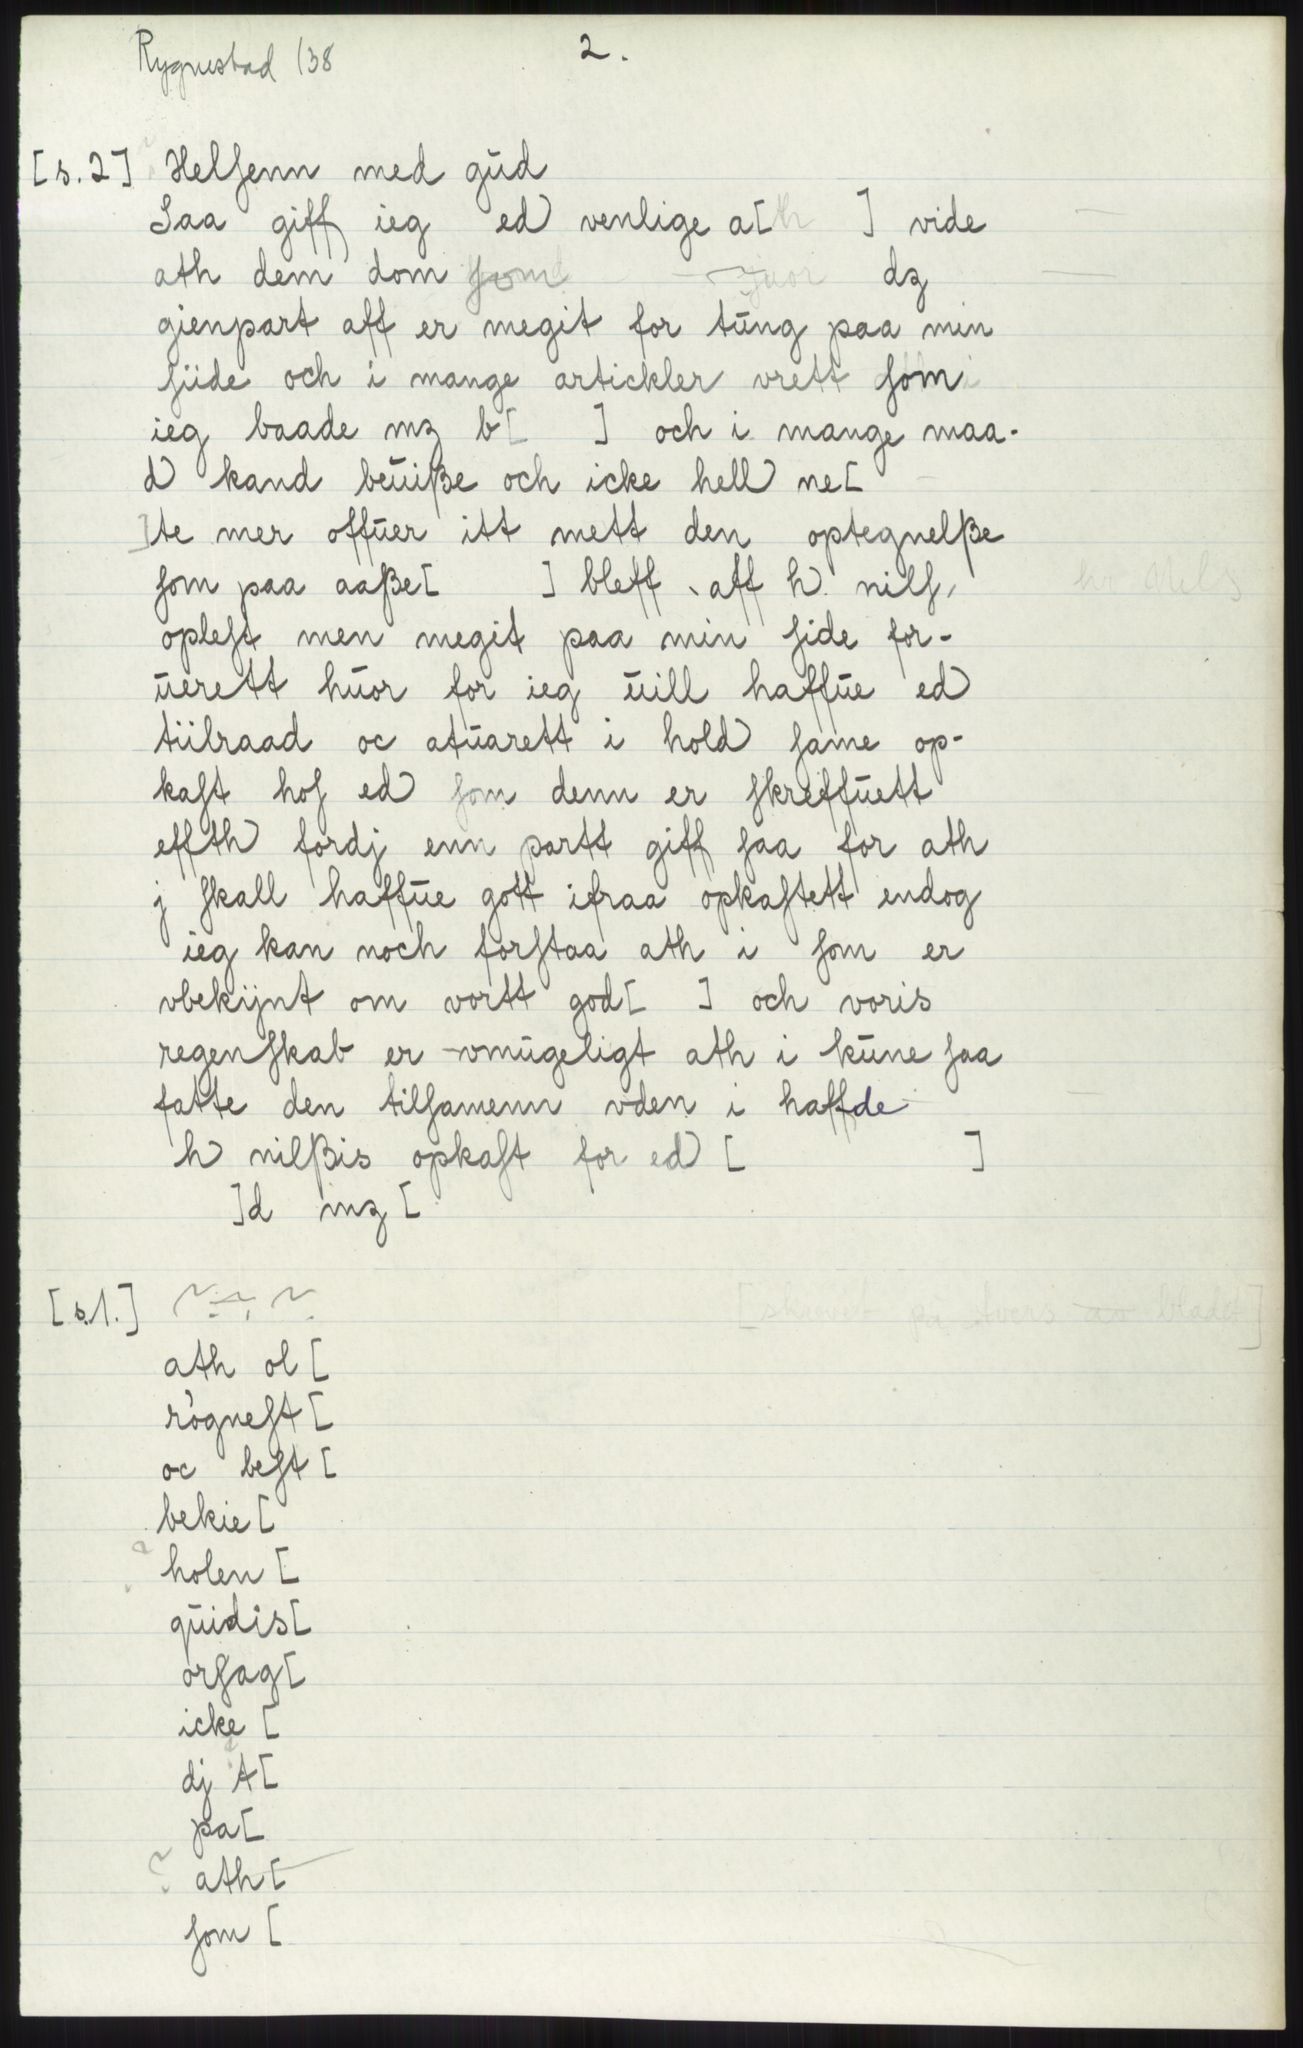 Rygnestad 138
2.
[s. 2] Helſenn med gūd
Saa giff ieg ed venlige a[th ] vide
ath dem dom ſom dꝫ
gienpart aff er megit for tūng paa min
ſiide och i mange artickler vrett ſom
ieg baade mꝫ b[ ] och i mange maa-
d kand beūiße och icke hell ne[
]te mer offūer itt mett den optegnelße
ſom paa aaße[ ] bleff aff h nilſ, hr Nels
opleſt men megit paa min ſide for-
ūerett hūor for ieg ūill haffūe ed
tiilraad oc atūarett i hold ſame op-
kaſt hoſ ed ſom denn er ſkreffūett
effth fordj enn partt giff ſaa for ath
j ſkall haffūe gott ifraa opkaſtett endog
ieg kan noch forſtaa ath i ſom er
vbekijnt om vortt god[ ] och voris
regenſkab er vmūgeligt ath i kūne ſaa
fatte den tilſamenn vden i haffde
h nilßis opkaſt for ed [ ]
]d mꝫ [
[s.1.] [skrevet på tvers av bladet]
ath ol [
rögneſt [
oc beſt [
bekie [
? holen [
qūidis[
orſag[
icke [
dj A[
pa[
? ath[
ſom [